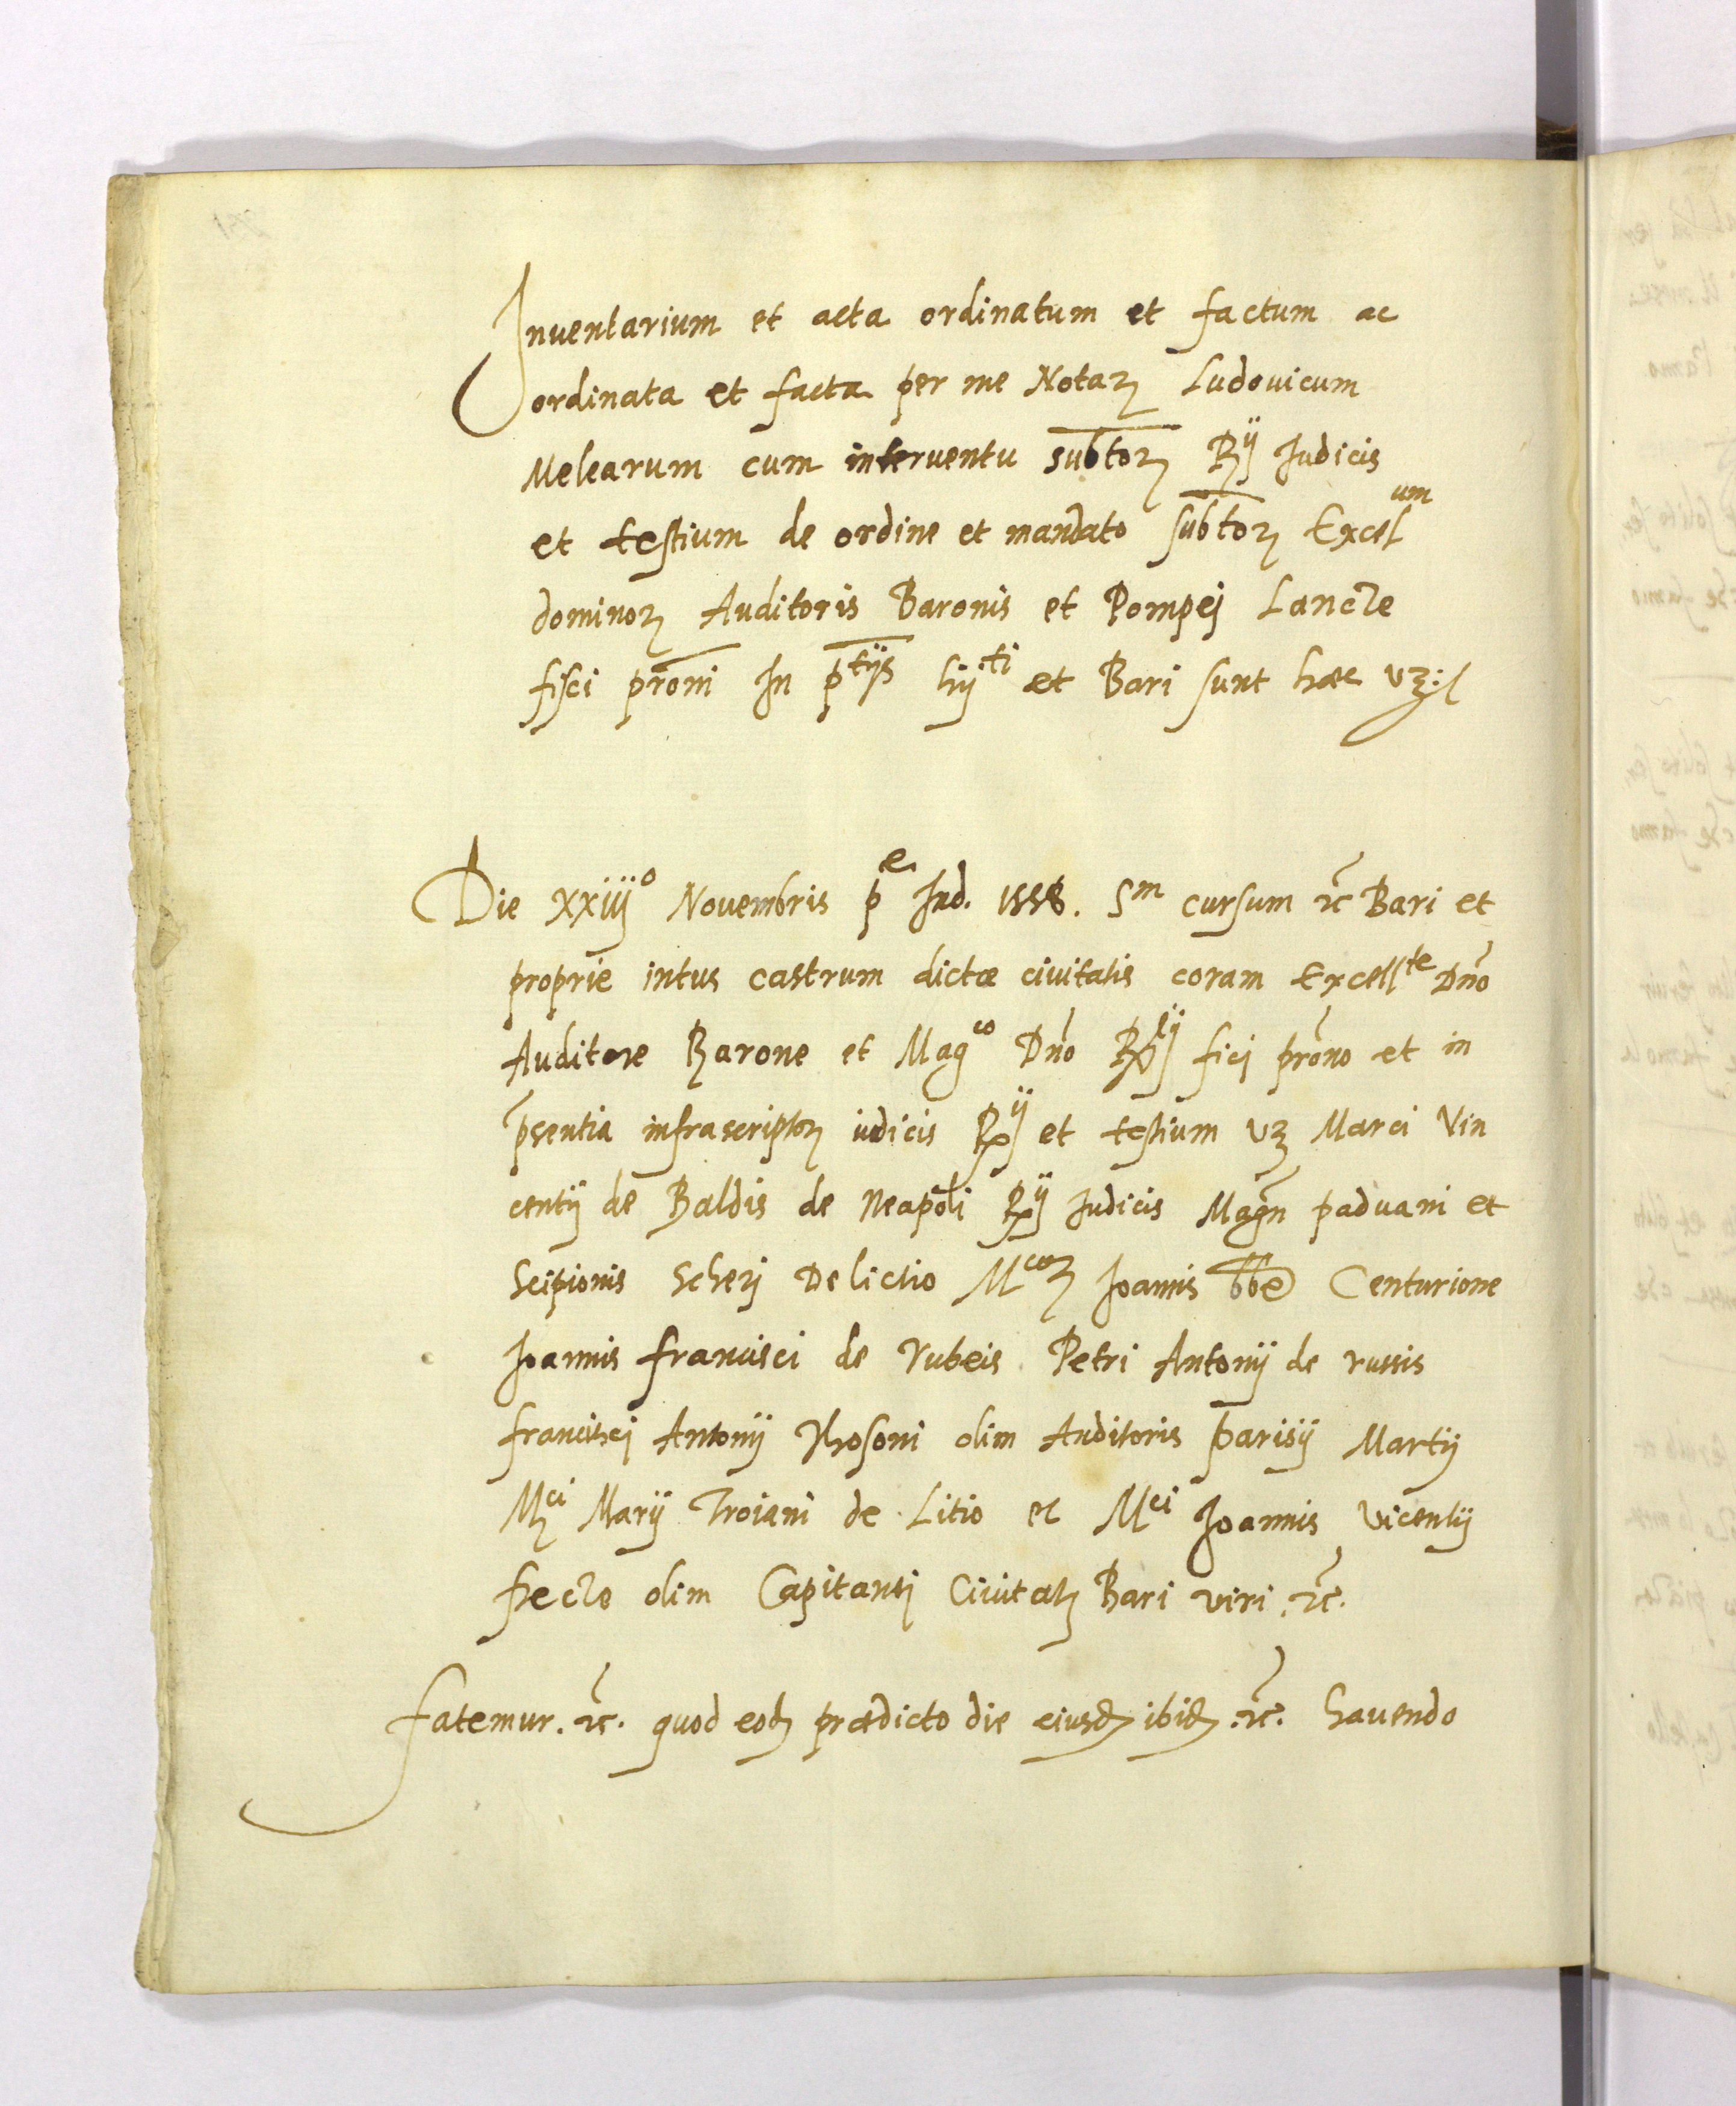 Inventarium et acta ordinatum et factum ac
ordinata et facta per me Notarꝫ Ludovicum
Melearum cum interventu subtorꝫ Rij Iudicis
et testium de ordine et mandato subtorꝫ Excelum
dominorꝫ Auditoris Baronis et Pompej Lancze
fisci proni In ptijs hijti et Bari sunt hæc vꝫ:
Die xxiiijo Novembris pe Ind. 1558. Sm cursum &c Bari et
proprie intus castrum dictæ civitatis coram Excellte Dno
Auditore Barone et Magco Dno fici prono et in
psentia infrascriptorꝫ iudicis Rij et testium vꝫ Marci Vin
centij de Baldis de Neapoli Rij Iudicis Magn paduani et
Scipionis Scherj Delictio Mcorꝫ Joannis bbe Centurione
Joannis francisci de rubeis Petri Antonij de russis
francischj Antonij olim Auditoris parisij Martij
Mci Marij Troiani de Litio et Mci Joannis Vicentij
frecze olim Capitanej Civitatꝫ Bari viri &c.
fatemur. &c. quod eodꝫ prædicto die eiusdꝫ ibidꝫ &c. havendo